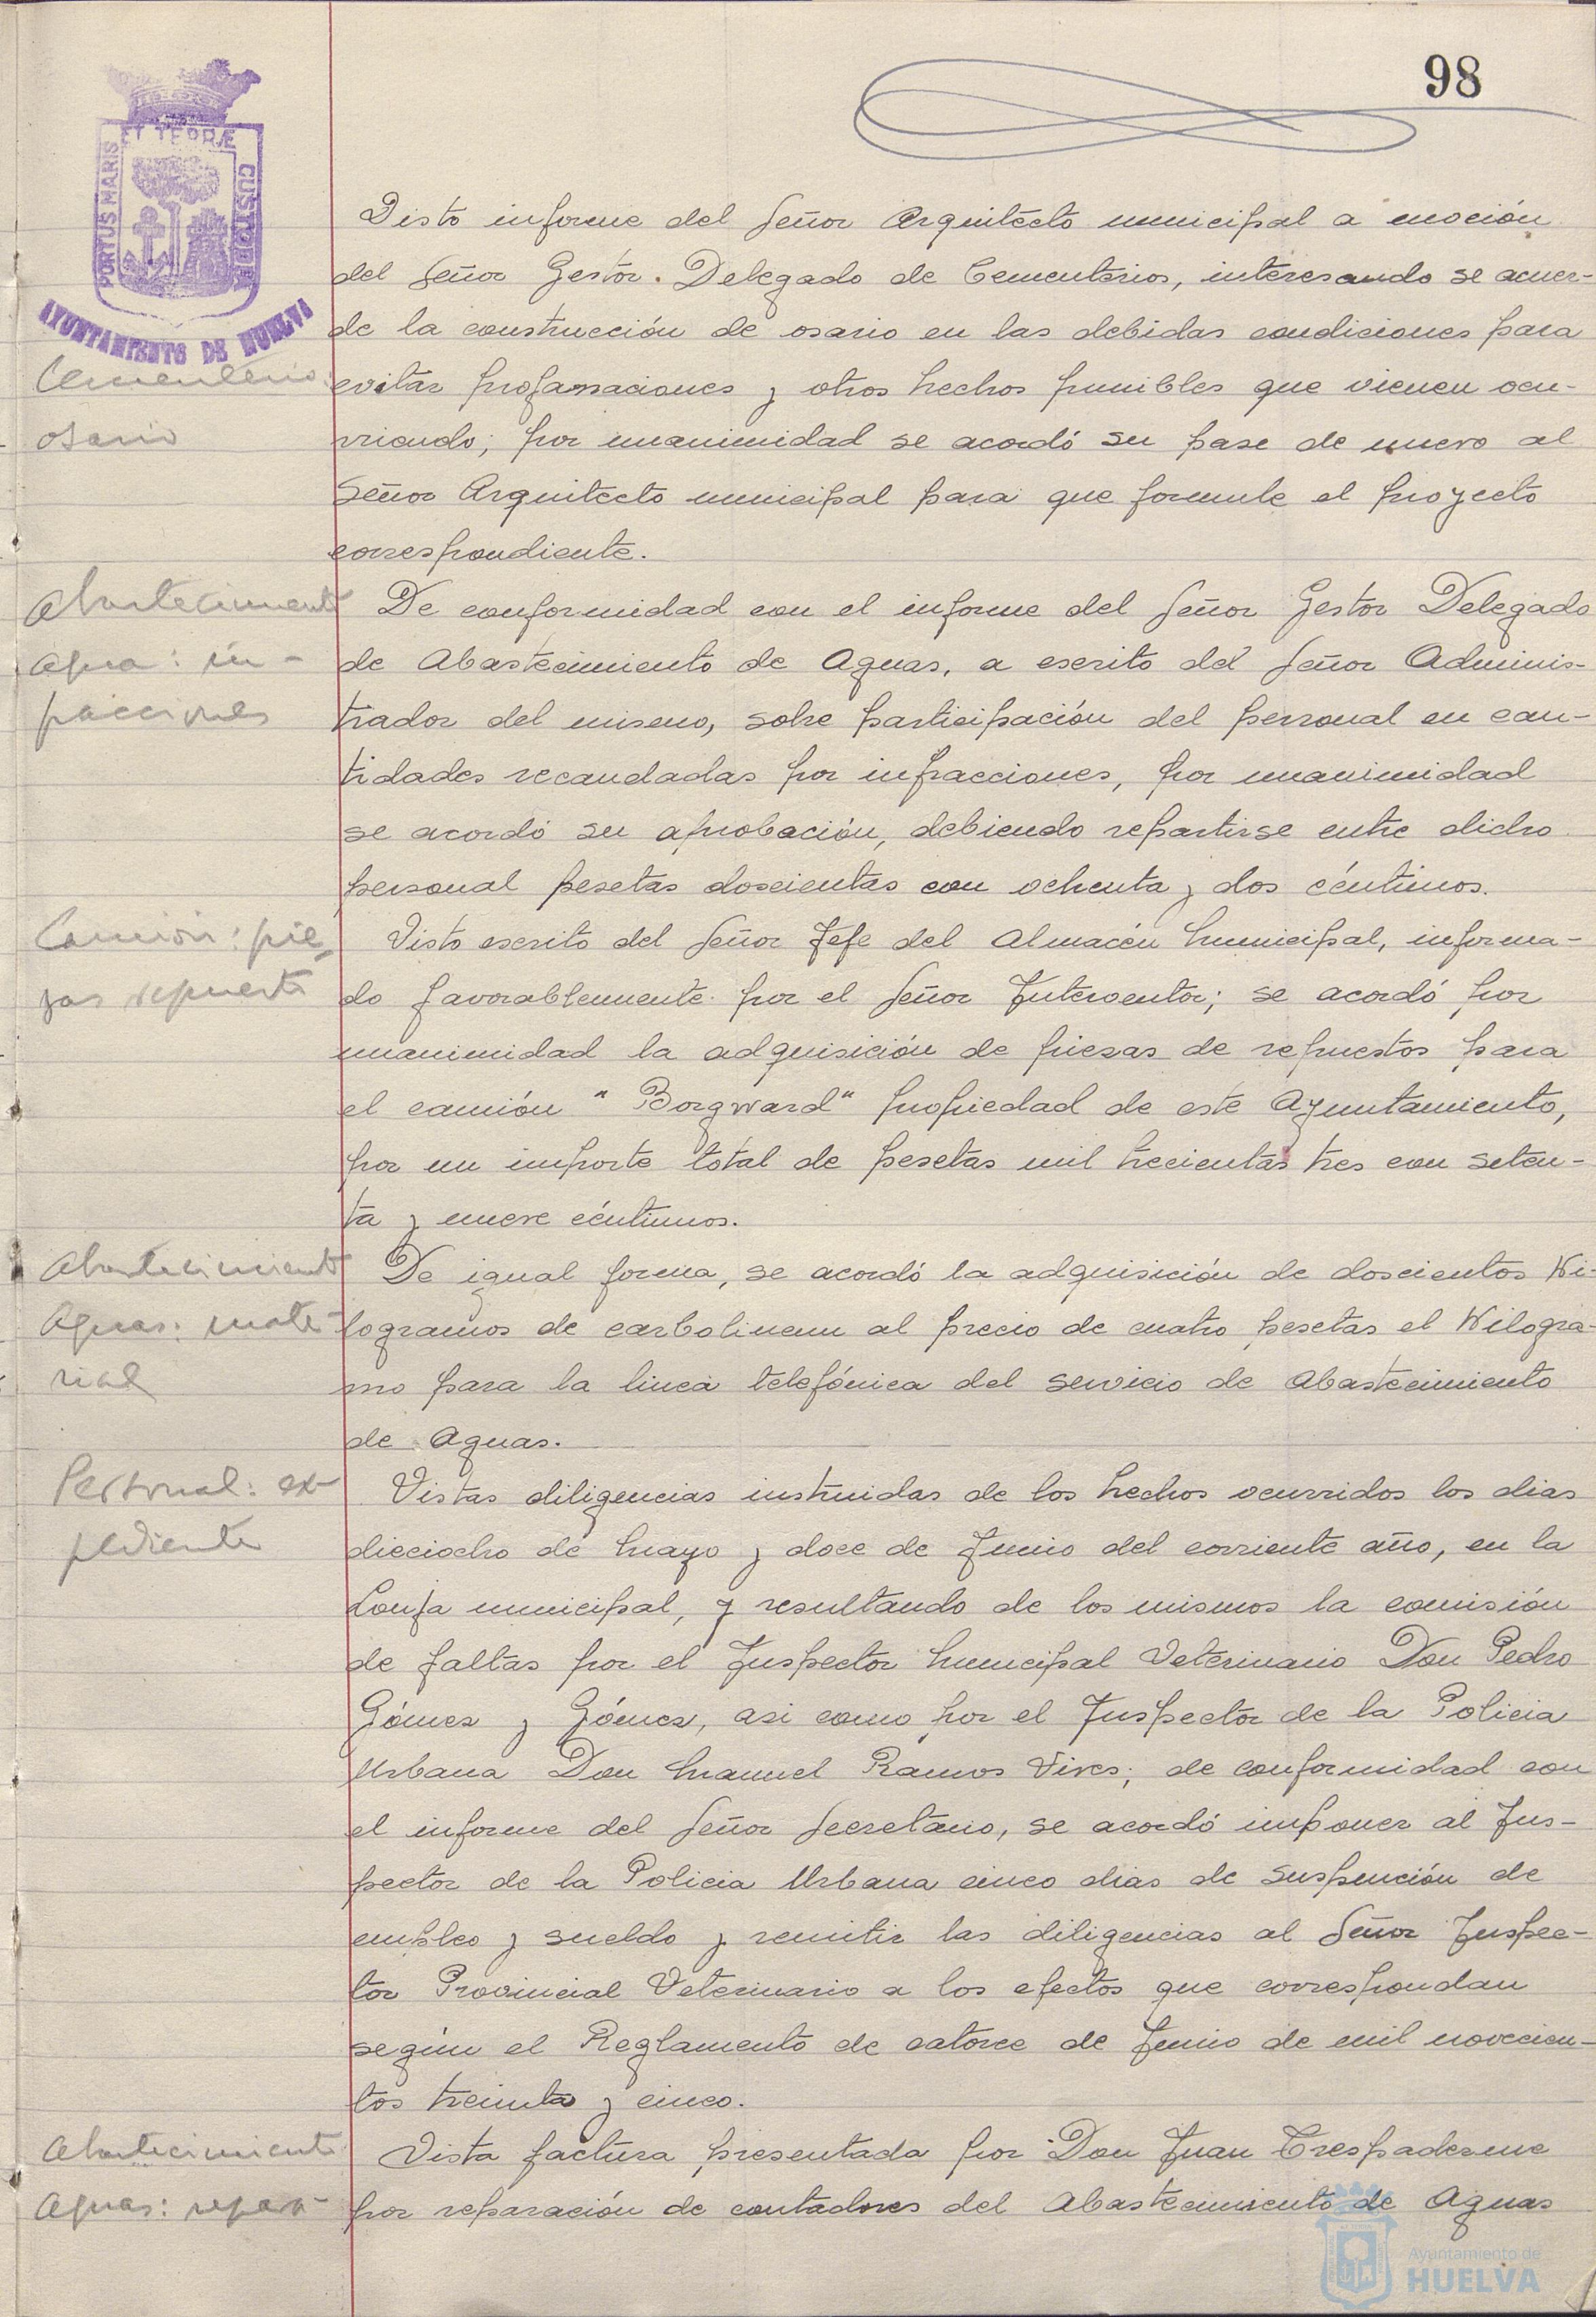 98
ET TERRÆ
PORTUS MARIS
CUSTODIA
AYUNTAMIENTO DE HUELVA
Visto informe del Señor Arquitecto municipal a moción
del Señor Gestor. Delegado de Cementerios, interesando se acuer-
de la construcción de osario en las debidas condiciones para
Cementerio:
evitar profanaciones y otros hechos punibles que vienen ocu-
osario
rriendo; por unanimidad se acordó su pase de nuevo al
Señor Arquitecto municipal para que formule el proyecto
correspondiente.
Abastecimiento
De conformidad con el informe del Señor Gestor Delegado
Agua: in-
de Abastecimiento de Aguas, a escrito del Señor Adminis-
fracciones
trador del mismo, sobre participación del personal en can-
tidades recaudadas por infracciones, por unanimidad
se acordó su aprobación, debiendo repartirse entre dicho
personal pesetas doscientas con ochenta y dos céntimos.
Camión: pie-
Visto escrito del Señor Jefe del Almacén Municipal, informa-
zas repuesto
do favorablemente por el Señor Interventor; se acordó por
unanimidad la adquisición de piezas de repuestos para
el camión "Borgward" propiedad de este Ayuntamiento,
por un importe total de pesetas mil trecientas tres con seten-
ta y nueve céntimos.
Abastecimiento
De igual forma, se acordó la adquisición de doscientos Ki-
Aguas: mate-
logramos de carbolineum al precio de cuatro pesetas el Kilogra-
rial
mo para la linea telefónica del servicio de Abastecimiento
de Aguas.
Personal: ex-
Vistas diligencias instruidas de los hechos ocurridos los dias
pediente
dieciocho de Mayo y doce de Junio del corriente año, en la
Lonja municipal, y resultando de los mismos la comisión
de faltas por el Inspector Municipal Veterinario Don Pedro
Gómez y Gómez, asi como por el Inspector de la Policia
Urbana Don Manuel Ramos Vives; de conformidad con
el informe del Señor Secretario, se acordó imponer al Ins-
pector de la Policia Urbana cinco dias de suspención de
empleo y sueldo y remitir las diligencias al Señor Inspec-
tor Provincial Veterinario a los efectos que correspondan
según el Reglamento de catorce de Junio de mil novecien-
tos treinta y cinco.
Abastecimiento
Vista factura presentada por Don Juan Trespaderne
Aguas: repara-
por reparación de contadores del Abastecimiento de Aguas
Ayuntamiento de
HUELVA